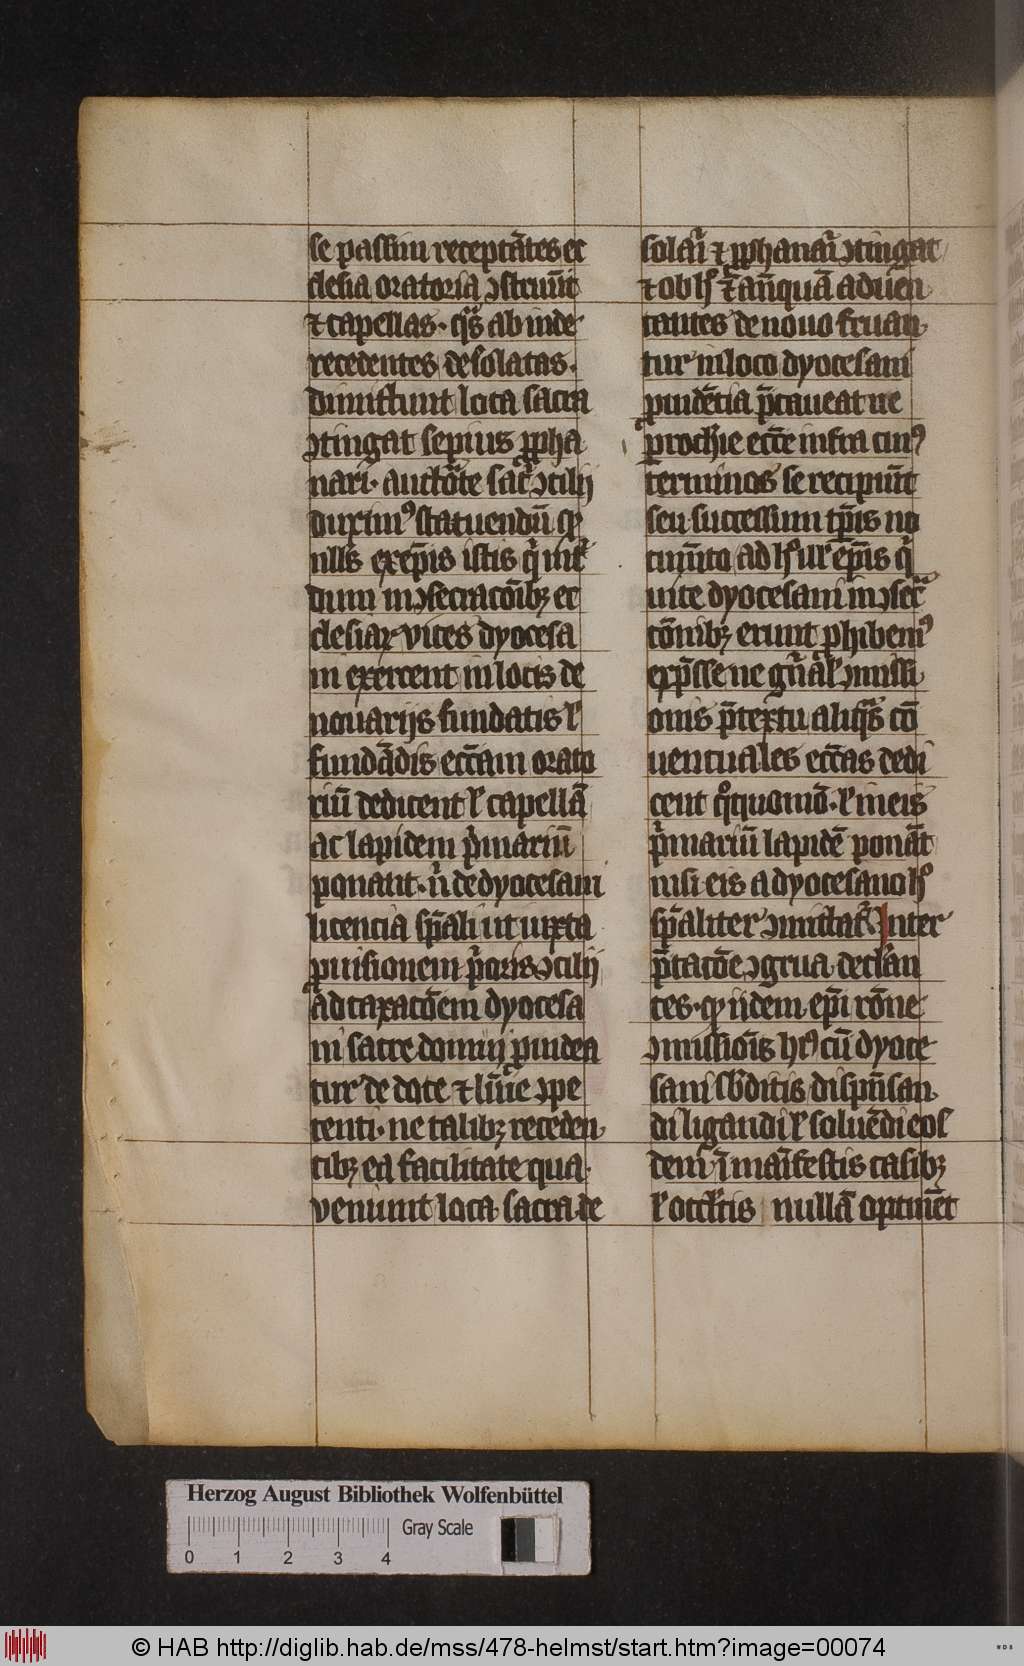 se passim receptātes ec
clesia oratoria ꝯstruūt
⁊ capellas· q̄s ab inde
recedentes desolatas·
dimittunt loca sacra
ꝯtingat sepius ꝓpha
nari· auctōte sac̄ ꝯcilij
duximꝰ statuendū ꝙ
nlls exep̄is istis q̇ int̄
dum in ꝯsecracōibꝫ ec
clesiaꝝ vices dyocesa
ni exercent in locis de
nouarijs fundatis ł
fundādis ecc̄am orato
riū dedicent ł capellā
ac lapidem ṗmariū
ponant· n̄ de dyocesani
licencia sp̄ali ut iuxta
ꝓuisionem ṗoris ꝯcilij
ad taxacōem dyocesa
ni sacre domuj ꝓuidea
tur de dote ⁊ lūīe ꝯpe
tenti· ne talibꝫ receden
tibꝫ ea facilitate qua
veniunt loca sacra de
solari ⁊ ꝓphanari ꝯtingat
⁊ ob h̄ tāꝗ̄ quā aduen
tantes de nouo fruan
tur in loco dyocesani
ꝓuidētia p̄caueat ne
ꝑrochie ecc̄e infra cuiꝰ
terminos se recipiūt
seu successim tp̄is no
cum̄to ad h̄ ul ep̄is q̇
vice dyocesani in ꝯsec̄
cōnibꝫ erunt ꝓhibemꝰ
exp̄sse ne gn̄al ꝯmissi
onis p̄textu aliq̄s cō
uentuales ecc̄as dedi
cent q̊quomō· ł in eis
ṗmariū lapidē ponāt
nisi eis a dyocesano h̄
sp̄aliter ꝯmittat̄ Inter
p̄tacōe ꝯgrua declan
tes· ꝙ ijdem ep̄i rōne
ꝯmissiōis hꝰ cū dyoce
sani sb̄ditis dispn̄san
di ligandi ł soluēdi eos
dem ī maīfestis casibꝫ
ł occltis nullā optinēt
Herzog August Bibliothek Wolfenbüttel
0 1 2 3 4 Gray Scale
© HAB http://diglib.hab.de/mss/478-helmst/start.htm?image=00074